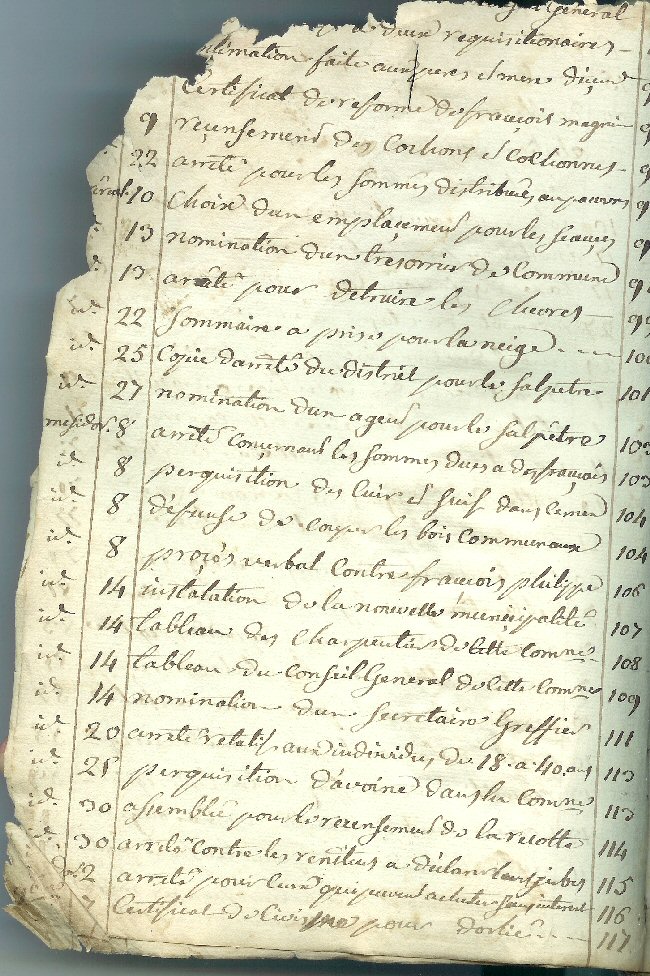 General
deux requisitionaires
faite aux peres et mere
Certificat de reforme de françois magni
9 reçensement des Cochons et Cochonnes 9
22 arrêté pour les sommes distribuées au pauvres 9
10 Choix d'un emplaçement pour les 9
13 nomination d'un tresorrier de Commune 9
13 arrêté pour detruire les Chevres 9
id. 22 Sommaire a prise pour la neige 10
id. 25 Copie d'arrêté du district pour le salpetre 101
id. 27 nomination d'un agent pour le salpêtre 103
messidor. 8 arrêté Conçernant les sommes dues a des françois 103
id. 8 perquisition des Cuir et suif dans 104
id. 8 défense de Couper les bois Communaux 104
id. 8 proçés verbal Contre françois philippe 106
id. 14 instalation de la nouvelle muniçipalité 107
id. 14 tableau des Charpentier de Cette Comne 108
id. 14 tableau du Conseil General de Cette Comne 109
id. 14 nomination d'un Secretaire Greffier 111
id. 20 arrêté relatif aux individus de 18. a 40. ans 113
id. 25 perquisition d'avoine dans la Comne 113
id. 30 assemblée pour le recensement de la recolte 114
id. 30 arrêté Contre les 115
2 arrêté pour Ceux qui 116
7 Certificat de Civisme pour 117